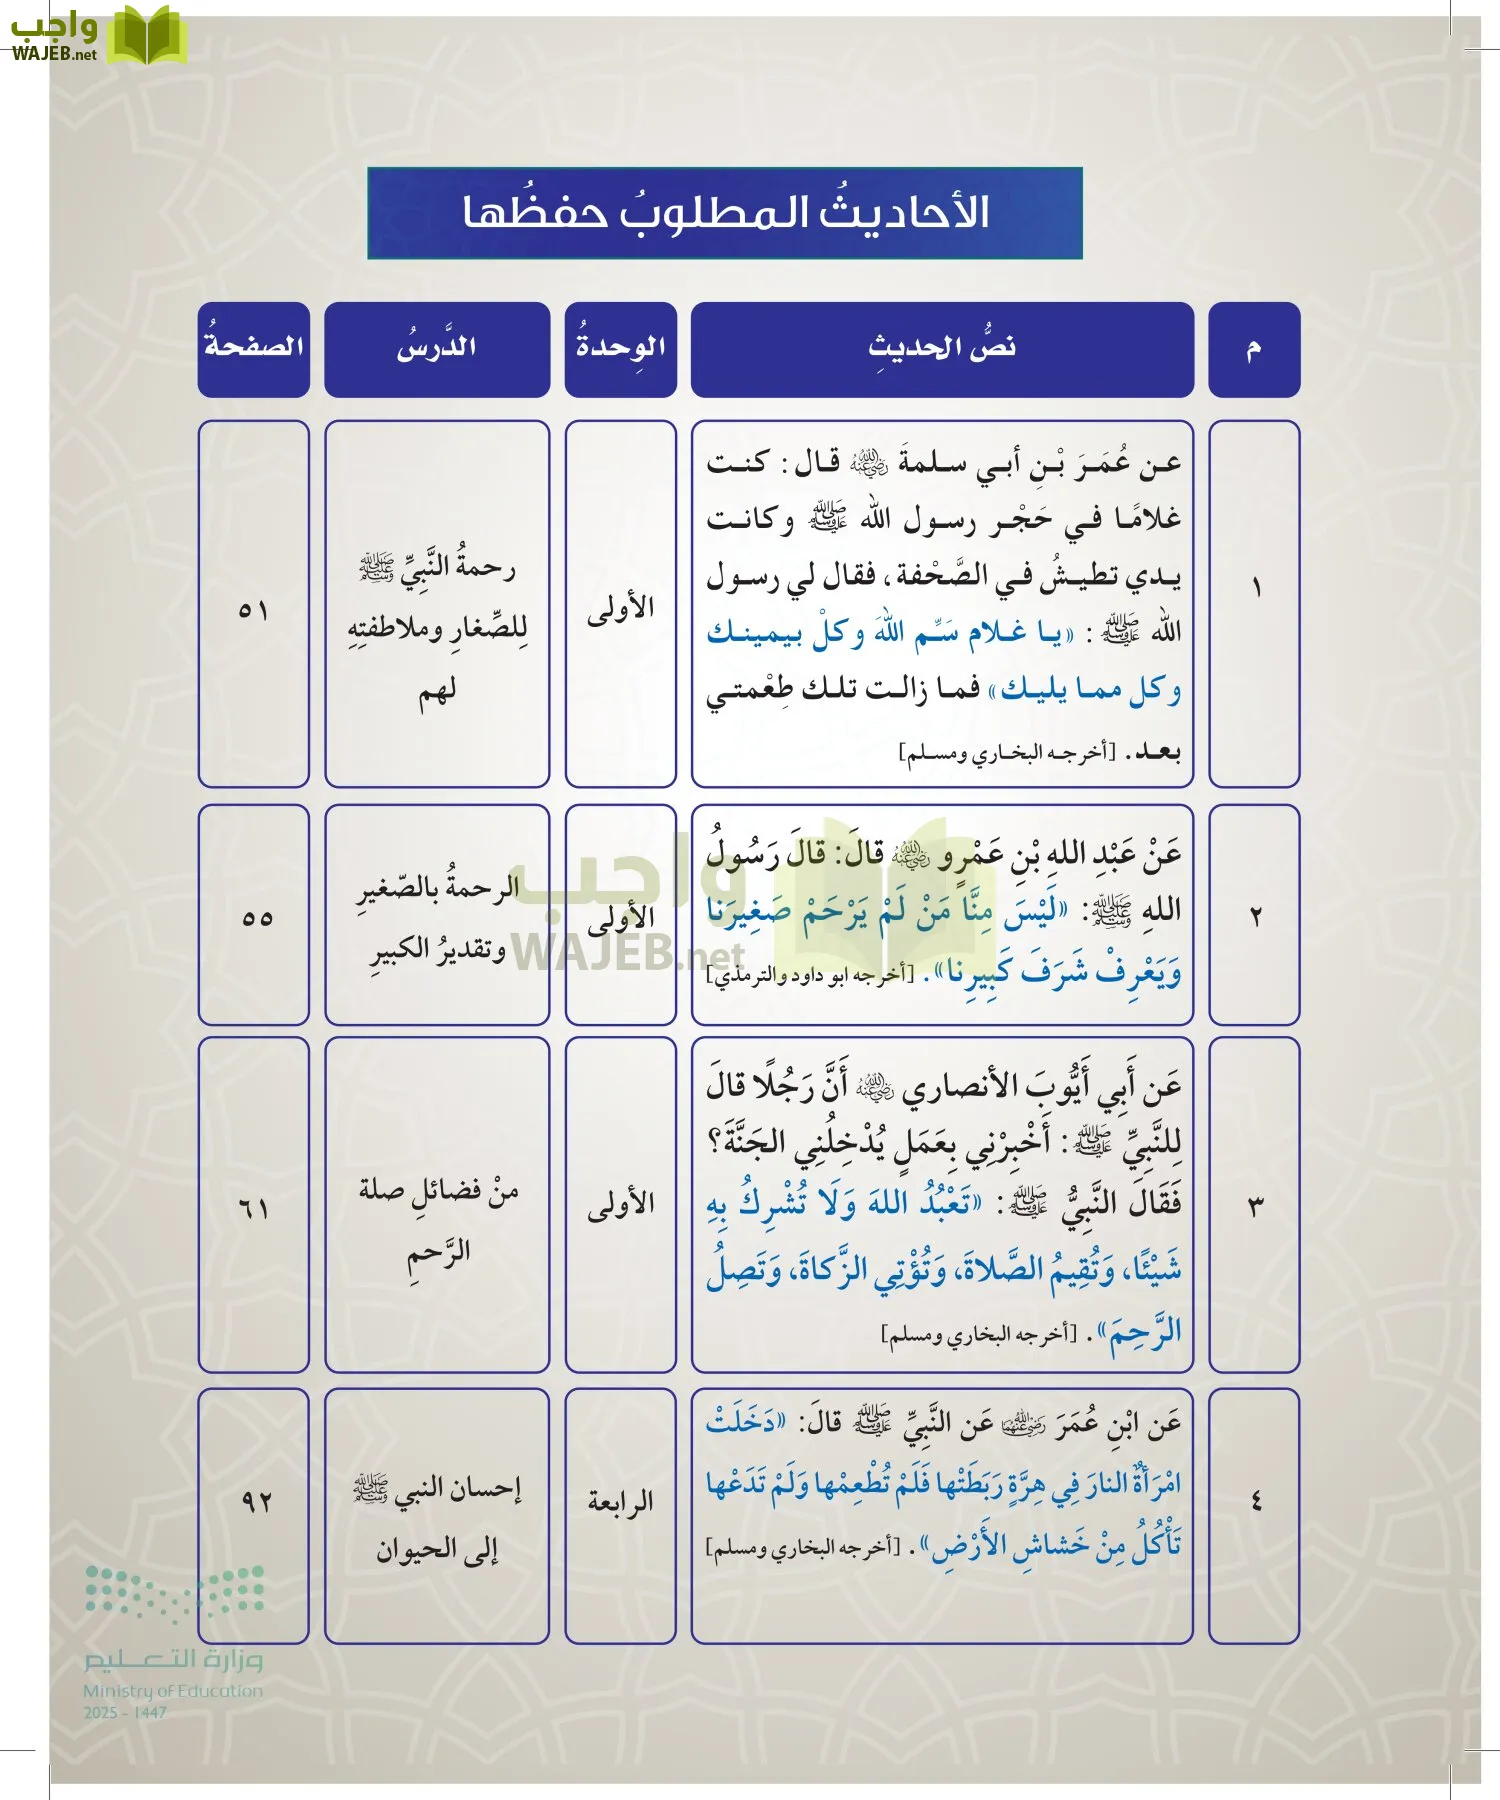 واجب
WAJEB.net
الأحاديثُ المطلوبُ حفظُها
م
نصُّ الحديثِ
الوِحدةُ
الدَّرسُ
الصفحةُ
١
عـن عُمَـرَ بْـنِ أبـي سـلمةَ رضي الله عنه قـال: كنـت
غلامًـا فـي حَجْـر رسـول الله ﷺ وكانـت
يـدي تطيـشُ فـي الصَّحْفـة، فقـال لي رسـول
الله ﷺ: «يـا غـلام سَـمِّ اللهَ وكلْ بيمينـك
وكل ممـا يليـك» فمـا زالـت تلـك طِعْمتـي
بعـد. [أخرجـه البخـاري ومسـلم]
الأولى
رحمةُ النَّبِيِّ ﷺ
لِلصِّغارِ وملاطفتِهِ
لهم
٥١
٢
عَنْ عَبْدِ اللهِ بْنِ عَمْرٍو رضي الله عنه قالَ: قالَ رَسُولُ
اللهِ ﷺ: «لَيْسَ مِنَّا مَنْ لَمْ يَرْحَمْ صَغِيرَنا
وَيَعْرِفْ شَرَفَ كَبِيرِنا». [أخرجه ابو داود والترمذي]
الأولى
الرحمةُ بالصّغيرِ
وتقديرُ الكبيرِ
٥٥
واجب
WAJEB.net
٣
عَن أَبِي أَيُّوبَ الأنصاري رضي الله عنه أَنَّ رَجُلًا قالَ
لِلنَّبِيِّ ﷺ: أَخْبِرْنِي بِعَمَلٍ يُدْخِلُنِي الجَنَّةَ؟
فَقَالَ النَّبِيُّ ﷺ: «تَعْبُدُ اللهَ وَلَا تُشْرِكُ بِهِ
شَيْئًا، وَتُقِيمُ الصَّلاةَ، وَتُؤْتِي الزَّكاةَ، وَتَصِلُ
الرَّحِمَ». [أخرجه البخاري ومسلم]
الأولى
منْ فضائلِ صلة
الرَّحمِ
٦١
٤
عَن ابْنِ عُمَرَ رضي الله عنهما عَن النَّبِيِّ ﷺ قالَ: «دَخَلَتْ
امْرَأةٌ النارَ فِي هِرَّةٍ رَبَطَتْها فَلَمْ تُطْعِمْها وَلَمْ تَدَعْها
تَأْكُلُ مِنْ خَشاشِ الأَرْضِ». [أخرجه البخاري ومسلم]
الرابعة
إحسان النبي ﷺ
إلى الحيوان
٩٢
وزارة التعليم
Ministry of Education
2025 - 1447